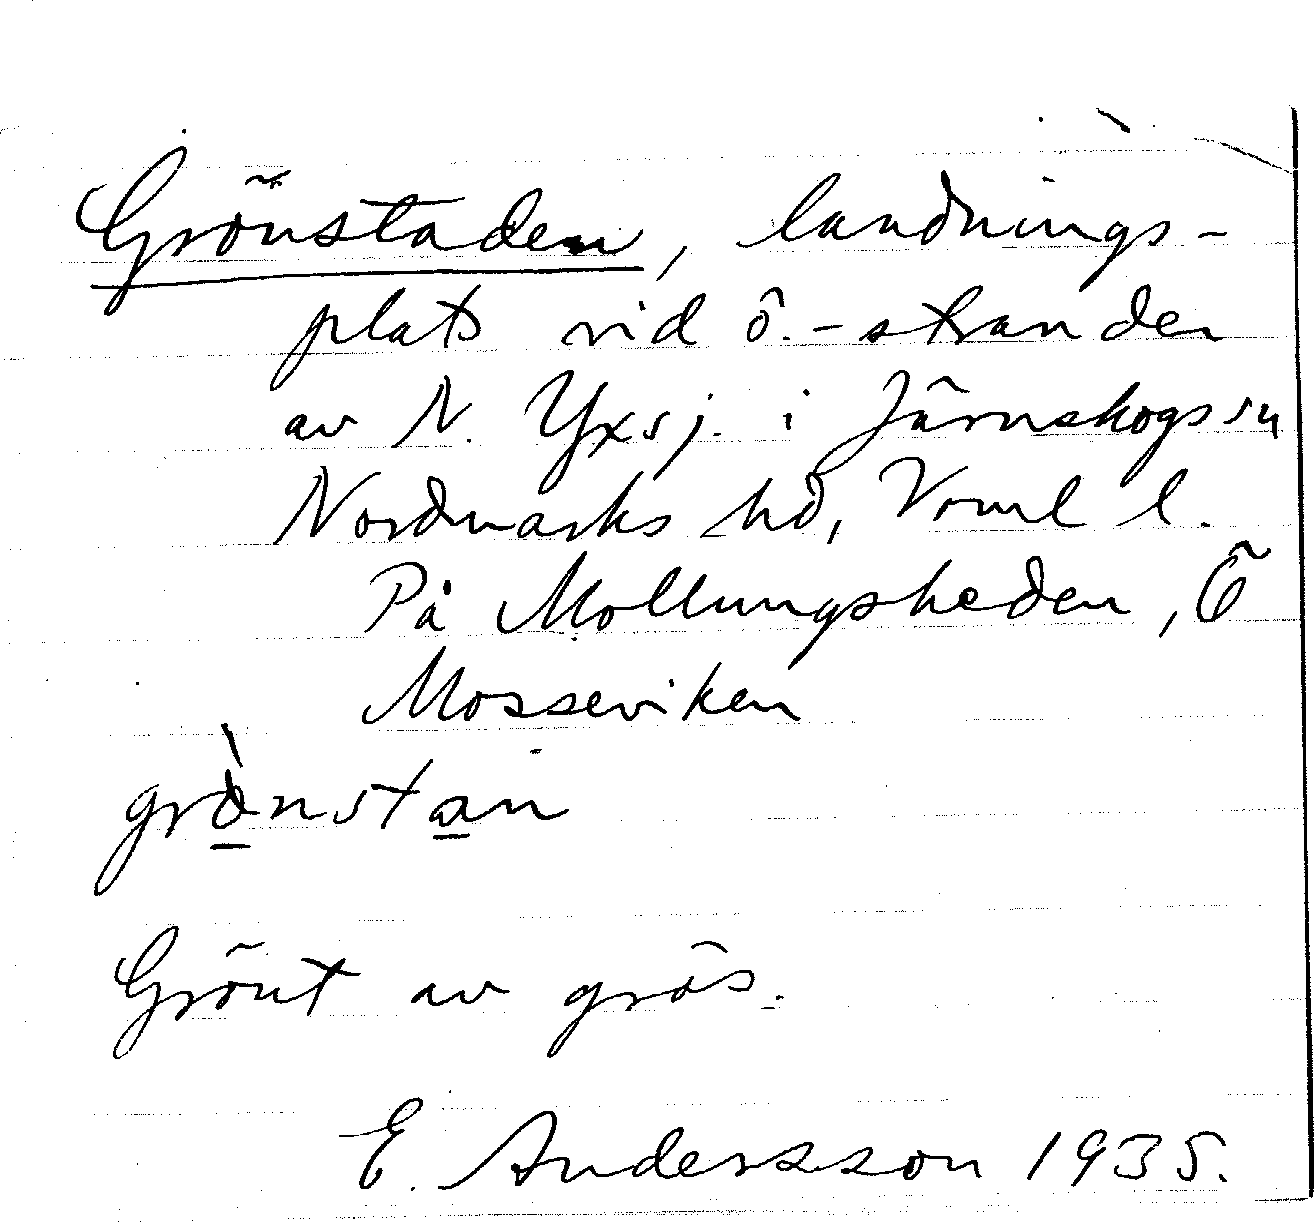 Grönstaden, landnings-
plats vid ö.-stranden
av N. Yxsj. i Järnskogs sn
Nordmarks hd, Vrml l.
På Mollungsheden, Ö
Mosseviken
grònstan
Grönt av gräs.
E. Andersson 1935.